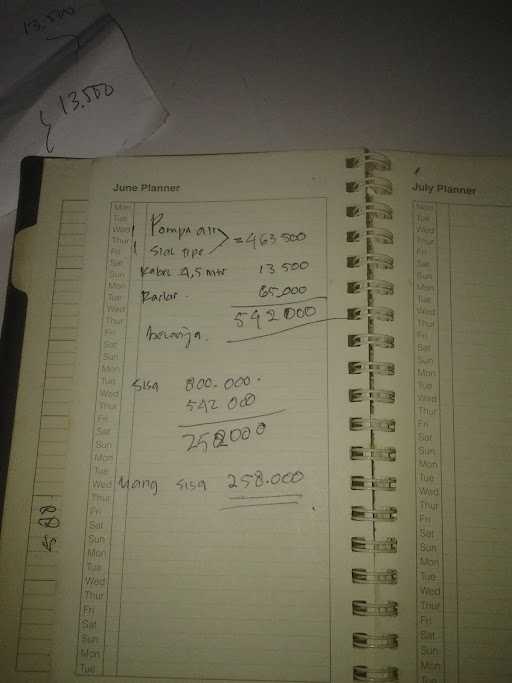 13.500
13.500
June Planner
July Planner
Mon
Tue
Wed
Thur
Fri
Sat
Sun
Mon
Tue
Wed
Thur
Fri
Sat
Sun
Mon
Tue
Wed
Thur
Fri
Sat
Sun
Mon
Tue
Wed
Thur
Fri
Sat
Sun
Mon
Tue
Wed
Thur
Fri
Sat
Sun
Mon
Tue
1 Pompa air
1 Sial tipe = 463 500
Kabel 4,5 mtr 13 500
65.000
542 000
belanja.
Sisa 800.000.
542 000
258000
Uang sisa 258.000
Mon
Tue
Wed
Thur
Fri
Sat
Sun
Mon
Tue
Wed
Thur
Fri
Sat
Sun
Mon
Tue
Wed
Thur
Fri
Sat
Sun
Mon
Tue
Wed
Thur
Fri
Sat
Sun
Mon
Tue
Wed
Thur
Fri
Sat
Sun
Mon